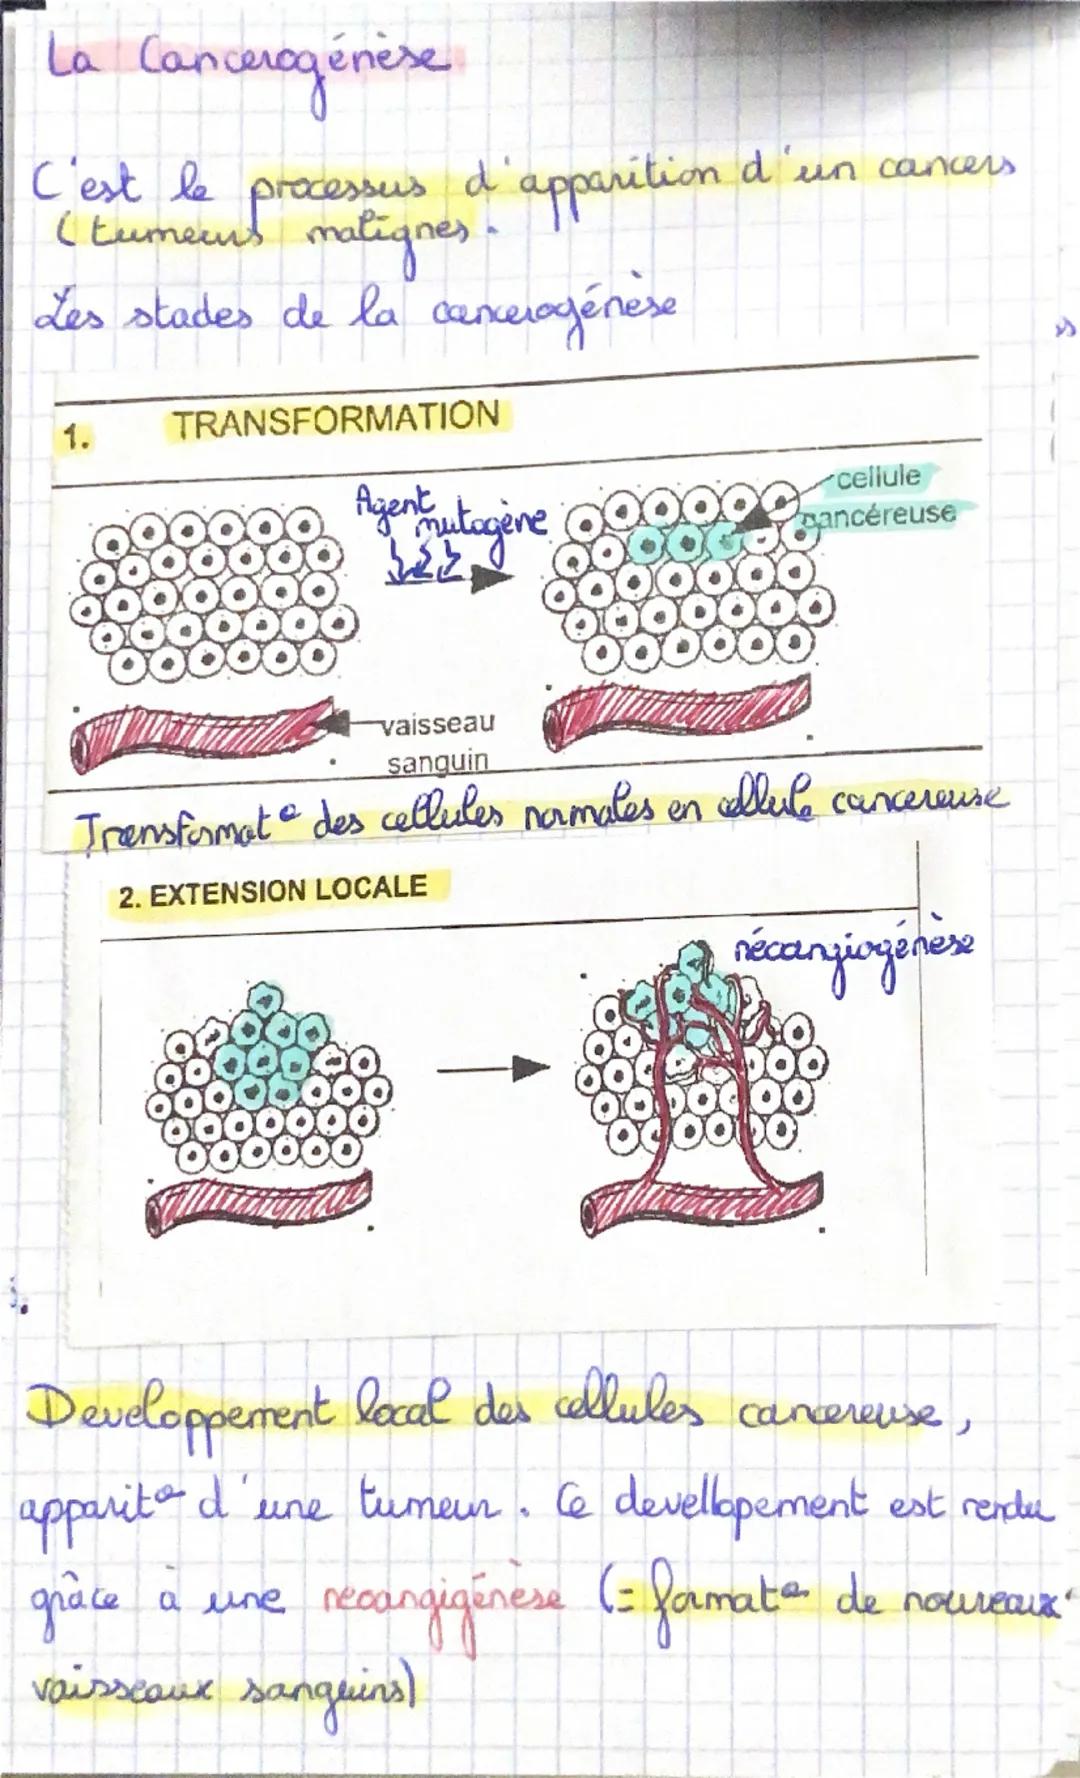 La Cancerogénèse
C'est le processus d'apparition d'un cancers
(tumeurs malignes.
Les stades de la cancerogénèse
1. TRANSFORMATION
Agent
mutagène
cellule
cancéreuse
vaisseau
sanguin
Transformat° des cellules normales en cellule cancereuse
2. EXTENSION LOCALE
néoangiogénèse
Developpement local des cellules cancereuse,
apparit° d'une tumeur. Ce devellopement est rendu
grâce à une néoangigénèse (= format° de nouveaux
vaisseaux sanguins)